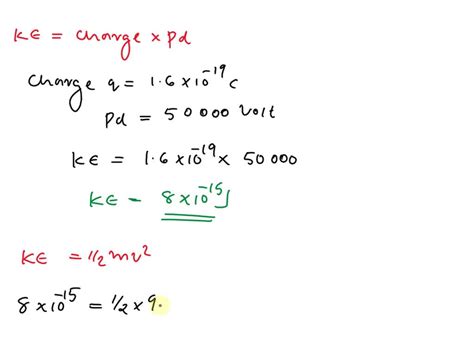 KE = charge × Pd
Charge q = 1.6×10⁻¹⁹ C
Pd = 50 000 Volt
KE = 1.6×10⁻¹⁹ × 50 000
KE = 8×10⁻¹⁵ J
KE = 1/2 mv²
8×10⁻¹⁵ = 1/2 × 9.